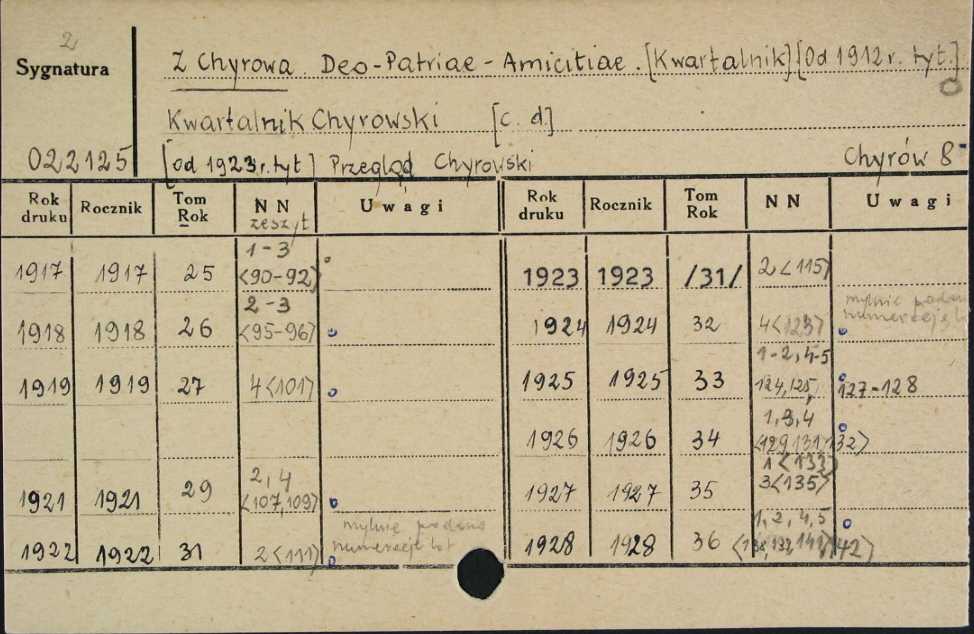 2
Sygnatura
Z Chyrowa. Deo-Patriae-Amicitiae. [Kwartalnik] [Od 1912 r. tyt.]
Kwartalnik Chyrowski [c. d.]
022125 [od 1923 r. tyt] Przegląd Chyrowski Chyrów 8°
Rok druku Rocznik Tom Rok NN zeszyt Uwagi Rok druku Rocznik Tom Rok NN Uwagi
1917 1917 25 1-3 <90-92> 1923 1923 /31/ 2<115>
1918 1918 26 2-3 <95-96> 1924 1924 32 4<123> mylnie podana numeracja
1919 1919 27 4<101> 1925 1925 33 1-2, 4-5 124,125, 127-128
1926 1926 34 1,3,4 <129,131,132>
1921 1921 29 2,4 <107,109> 1927 1927 35 1<133> 3<135>
1922 1922 31 2<111> mylnie podana numeracja lat 1928 1928 36 1,2,4,5